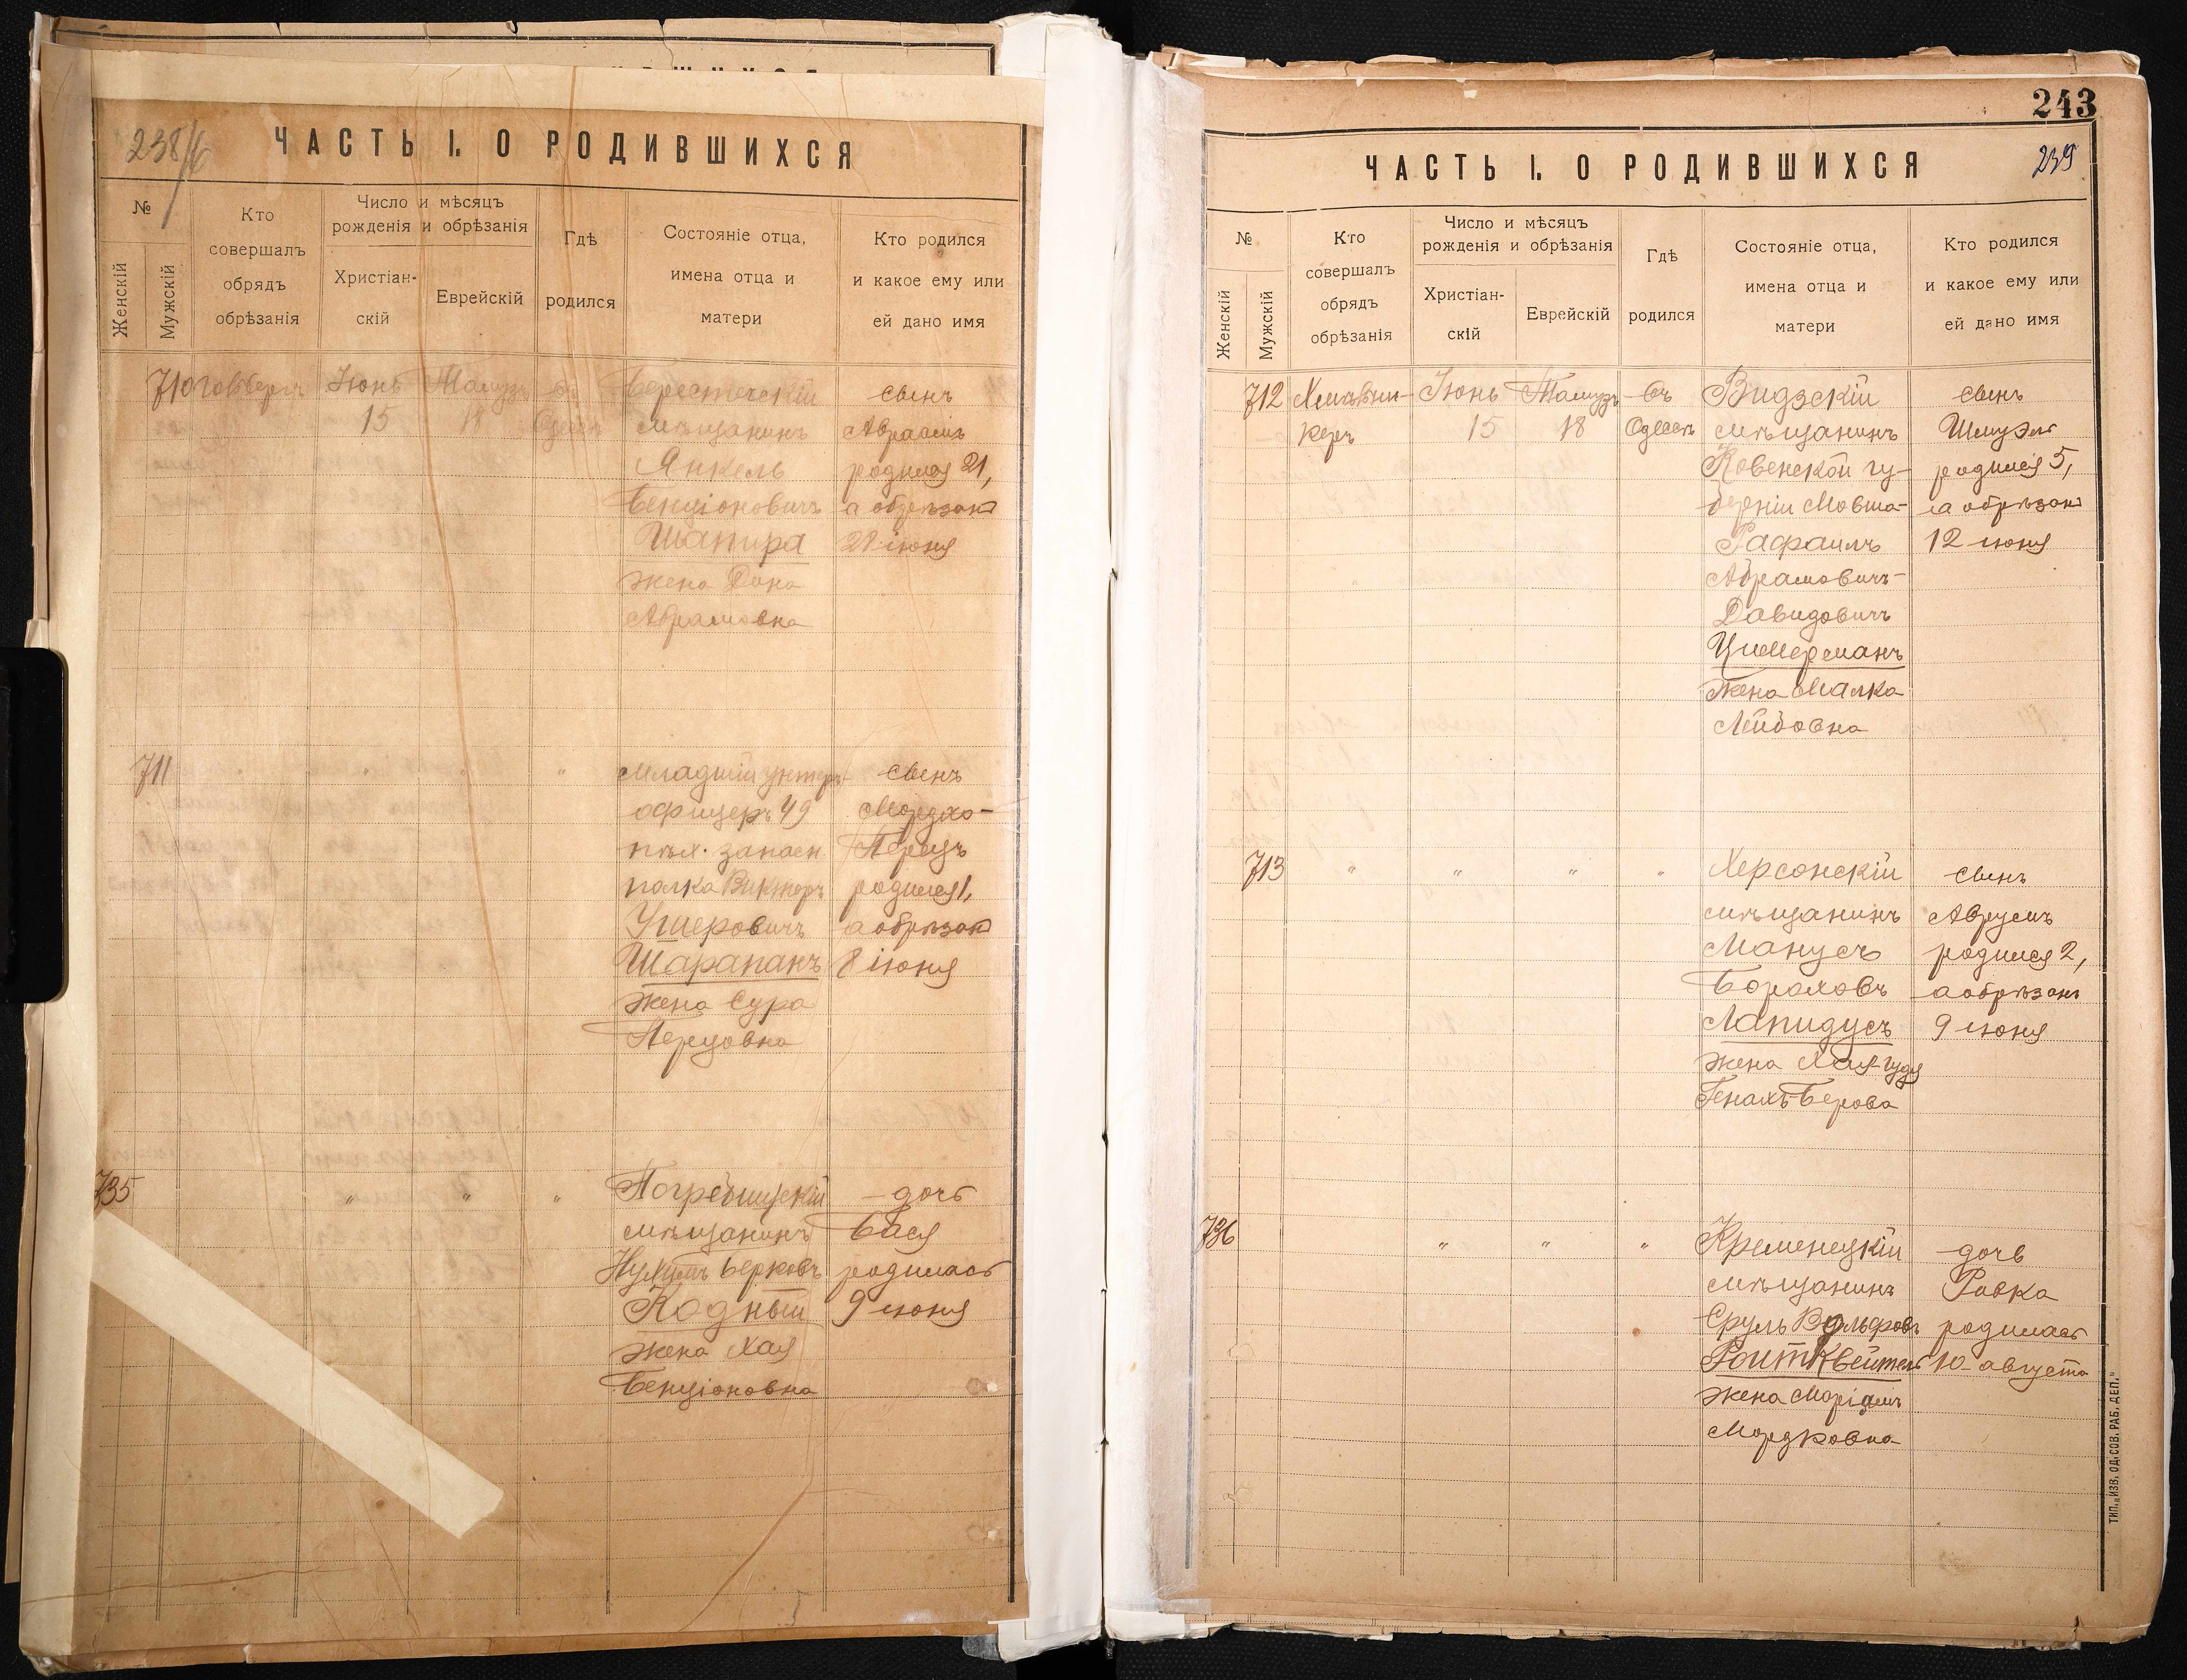 238
ЧАСТЬ I. О РОДИВШИХСЯ
№
Женскій
Мужскій
Кто
совершалъ
обрядъ
обрѣзанія
Число и мѣсяцъ
рожденія и обрѣзанія
Христіан-
скій
Еврейскій
Гдѣ
родился
Состояніе отца,
имена отца и
матери
Кто родился
и какое ему или
ей дано имя
710
Іюнь
15
Тамузъ
18
въ
Одессѣ
Берестечскій
мѣщанинъ
Янкель
Бенціоновичъ
Шапира
жена Дина
Абрамовна
сынъ
Авраамъ
родился 21,
а обрѣзанъ
28 іюня
711
"
"
"
Младшій унтеръ-
офицеръ 49
пѣх. запасн
полка Викторъ
Ушеровичъ
Шарапанъ
жена Сура
Перцовна
сынъ
Мордхо-
Перецъ
родился 1,
а обрѣзанъ
8 іюня
735
"
"
"
Погребищскій
мѣщанинъ
Берковъ
Кодный
жена Хая
Бенціоновна
дочь
Бася
родилась
9 іюня
243
239
ЧАСТЬ I. О РОДИВШИХСЯ
№
Женскій
Мужскій
Кто
совершалъ
обрядъ
обрѣзанія
Число и мѣсяцъ
рожденія и обрѣзанія
Христіан-
скій
Еврейскій
Гдѣ
родился
Состояніе отца,
имена отца и
матери
Кто родился
и какое ему или
ей дано имя
712
Іюнь
15
Тамузъ
18
въ
Одессѣ
Видзскій
мѣщанинъ
Ковенской гу-
берніи Мовша-
Рафаилъ
Абрамовичъ-
Давидовичъ
Цимерманъ
жена Малка
Лейбовна
сынъ
Шмуэль
родился 5,
а обрѣзанъ
12 іюня
713
"
"
"
"
Херсонскій
мѣщанинъ
Манусъ
Бораховъ
Лапидусъ
жена Хая-Гудя
Генахъ-Берова
сынъ
Аврумъ
родился 2,
а обрѣзанъ
9 іюня
736
"
"
"
Кременецкій
мѣщанинъ
Сруль Вольфовъ
жена Маріамъ
Мордковна
дочь
Ривка
родилась
10 августа
ТИП. „ИЗВ. ОД. СОВ. РАБ. ДЕП."